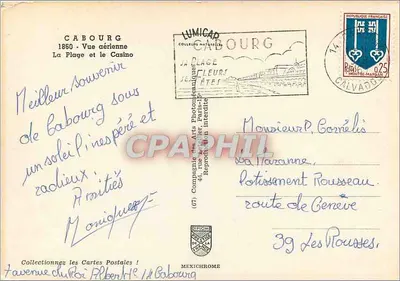 CABOURG
1860 - Vue aérienne
La Plage et le Casino
LUMICAP
COULEURS NATURELLES
CABOURG
SA PLAGE
SES FLEURS
SES FÊTES
14
CALVADOS
REPUBLIQUE FRANÇAISE
0,25
MONT-DE-MARSAN
Meilleur souvenir
de Cabourg sous
un soleil inespéré et
radieux.
Amitiés
Monique
(67) Compagnie des Arts Photomécaniques
44, rue Letellier, Paris-15e
Reproduction interdite
CPAPHIL
Monsieur P. Cornélis
La Varanne
Lotissement Rousseau
route de Genève
39 Les Rousses.
MEXICHROME
Collectionnez les Cartes Postales !
7 avenue du Roi Albert 1er 14 Cabourg